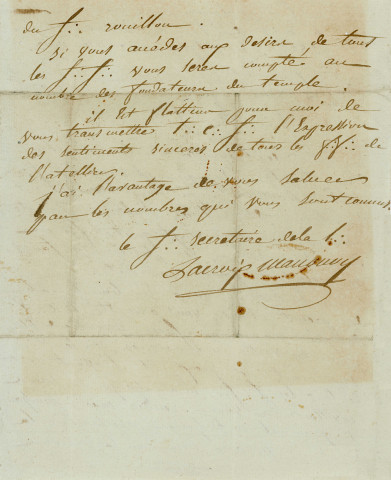 du f∴ rouillon.
si vous accédes aux desirs de tous
les f∴ f∴ vous seres compté au
nombre des fondateurs du temple.
il est flatteur pour moi de
vous transmettre t∴ c∴ f∴ l'Expression
des sentiments sinceres de tous les f∴ f∴ de
l'attellier.
j'ai l'avantage de vous saluer
par les nombres qui vous sont connus.
le f∴ secretaire de la L∴
Lacroix